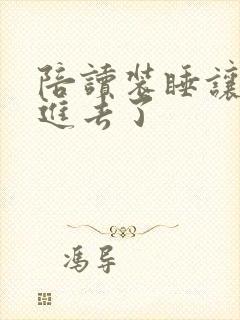 陪讀装睡讓
進去了
馮导